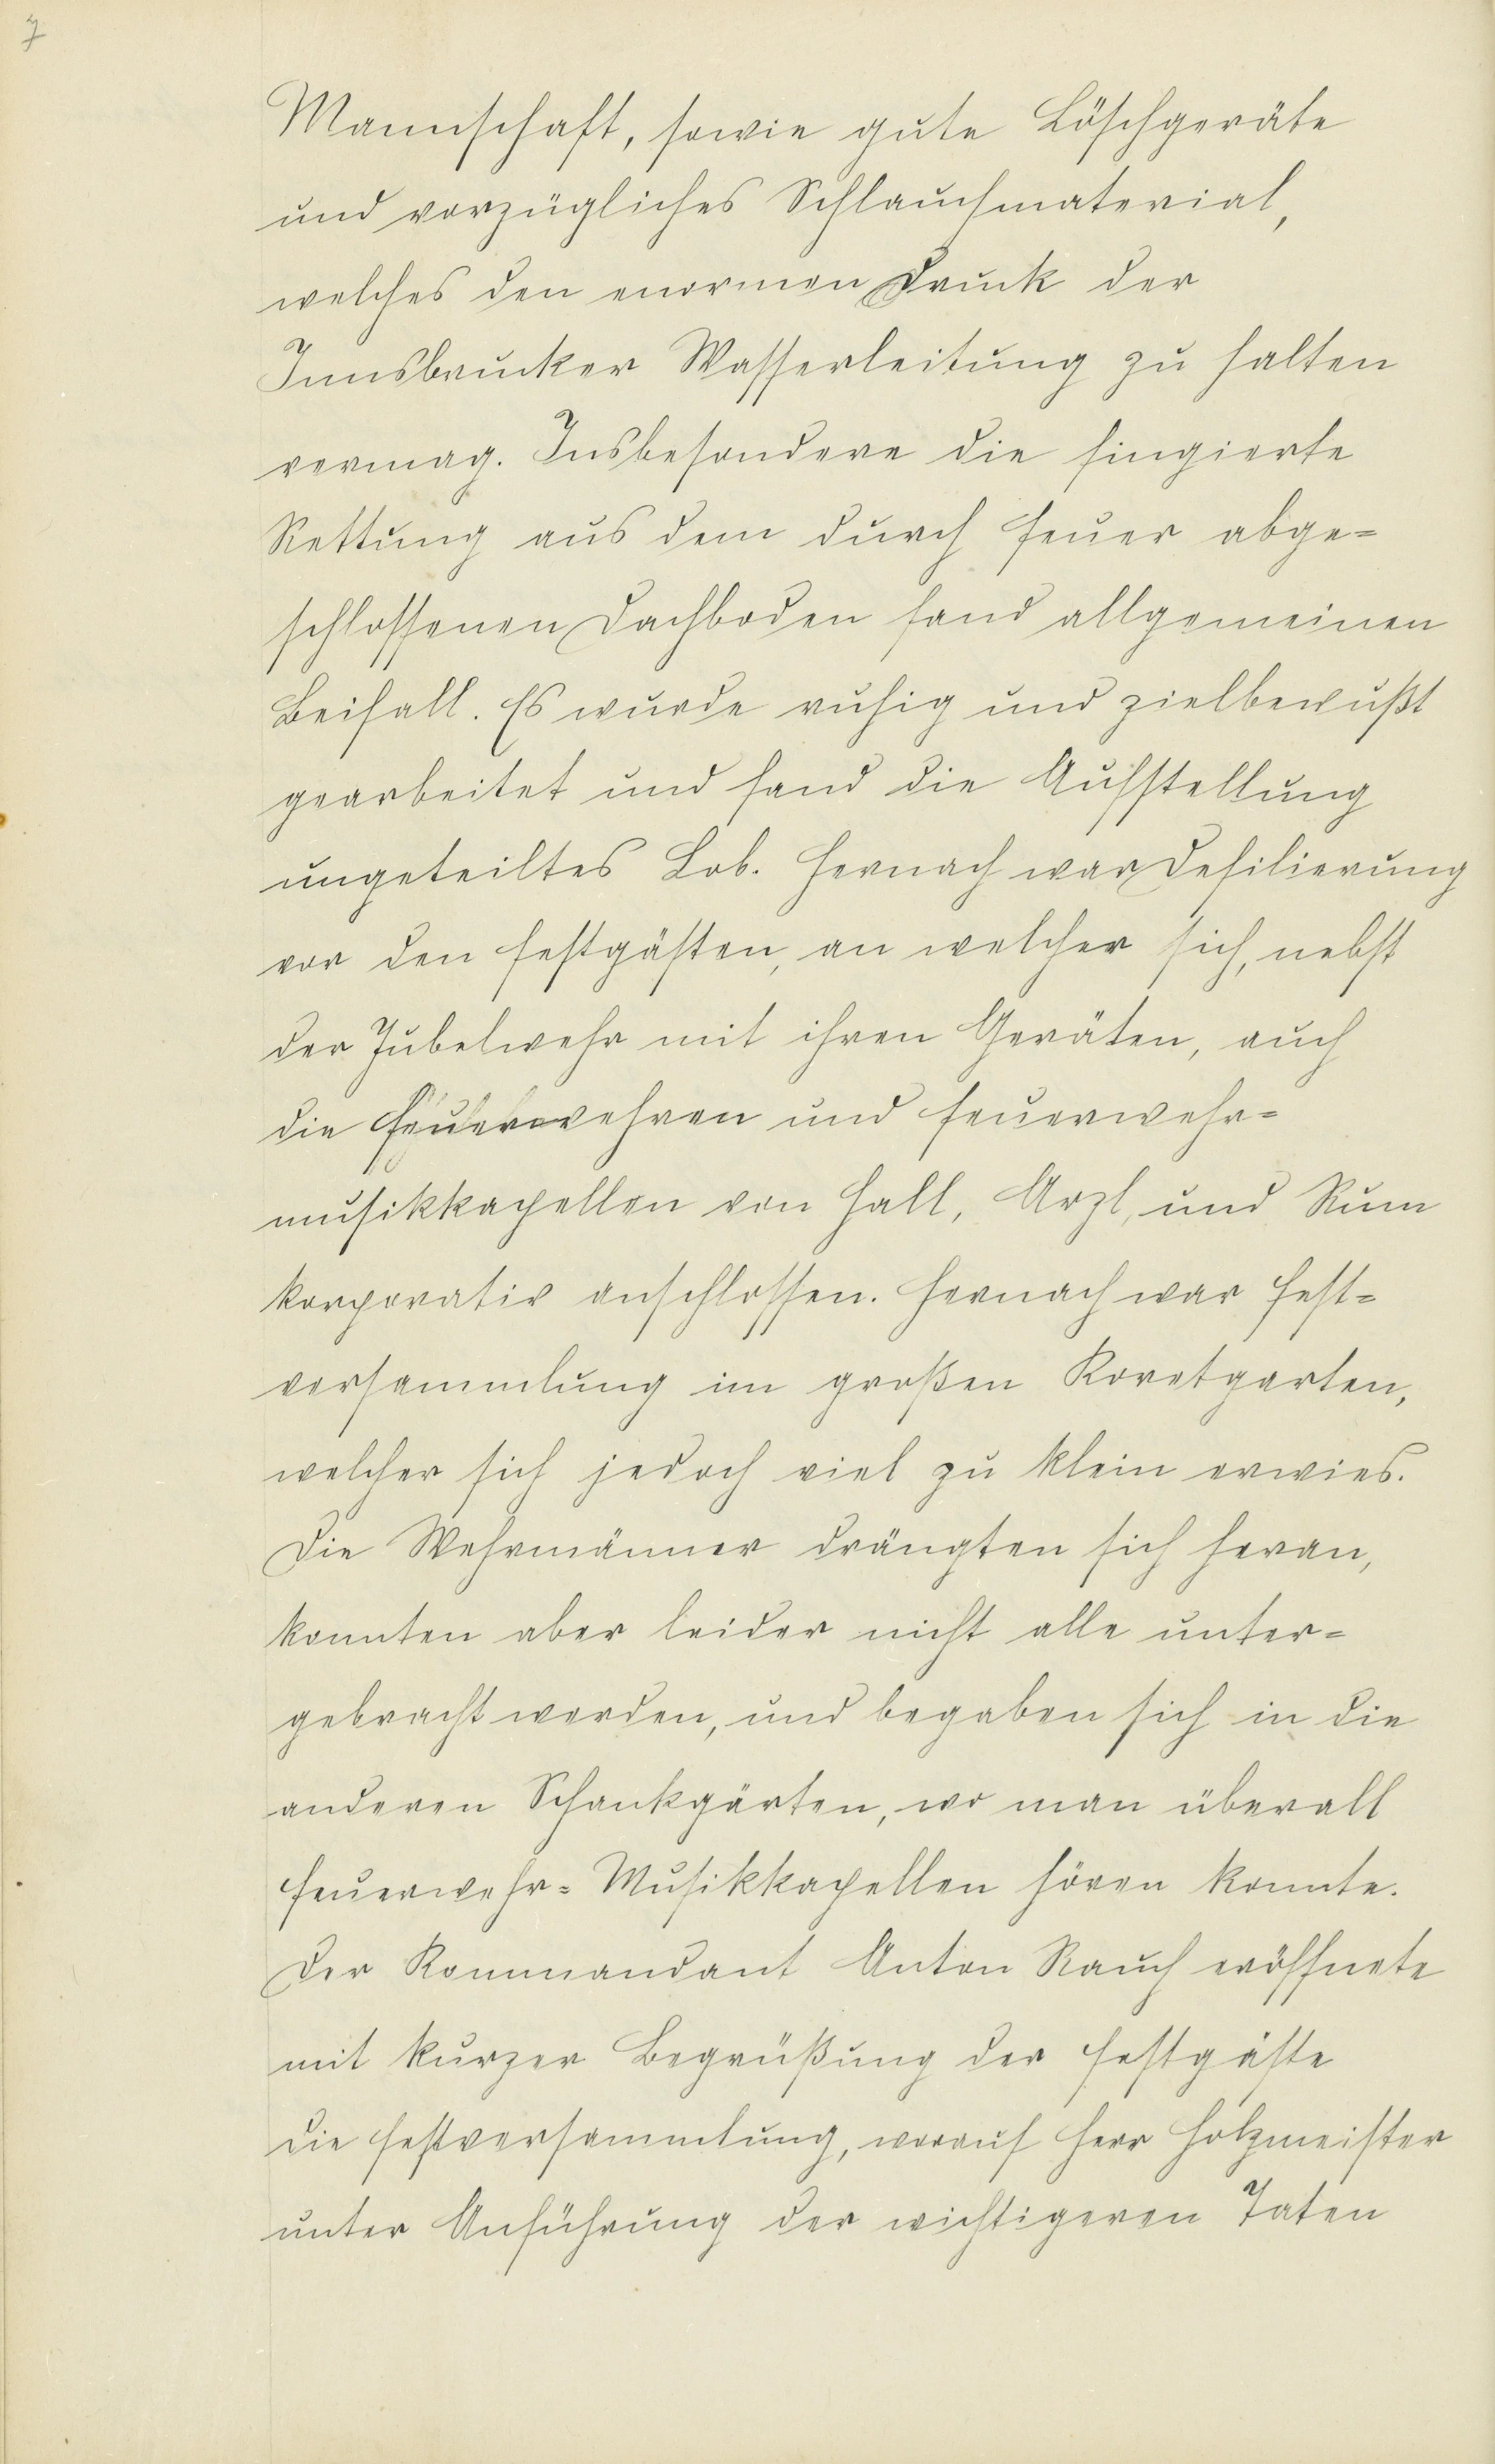 7
Mannschaft, sowie gute Löschgeräte
und vorzügliches Schlauchmaterial,
welches den enormen Druck der
Innsbrucker Wasserleitung zu halten
vermag. Insbesondere die fingierte
Rettung aus dem durch Feuer abge=
schlossenen Dachboden fand allgemeinen
Beifall. Es wurde ruhig und zielbewußt
gearbeitet und fand die Aufstellung
ungeteiltes Lob. Hernach war Defilierung
vor den Festgästen, an welcher sich, nebst
der Jubelwehr mit ihren Geräten, auch
die Feuerwehren und Feuerwehr=
musikkapellen von Hall, Arzl, und Rum
korporativ anschlossen. Hernach war Fest=
versammlung im großen Koretgarten,
welcher sich jedoch viel zu klein erwies.
Die Wehrmänner drängten sich heran,
konnten aber leider nicht alle unter=
gebracht werden, und begaben sich in die
anderen Schankgärten, wo man überall
Feuerwehr=Musikkapellen hören konnte.
Der Kommandant Anton Rauch eröffnete
mit kurzer Begrüßung der Festgäste
die Festversammlung, worauf Herr Holzmeister
unter Anführung der wichtigeren Taten